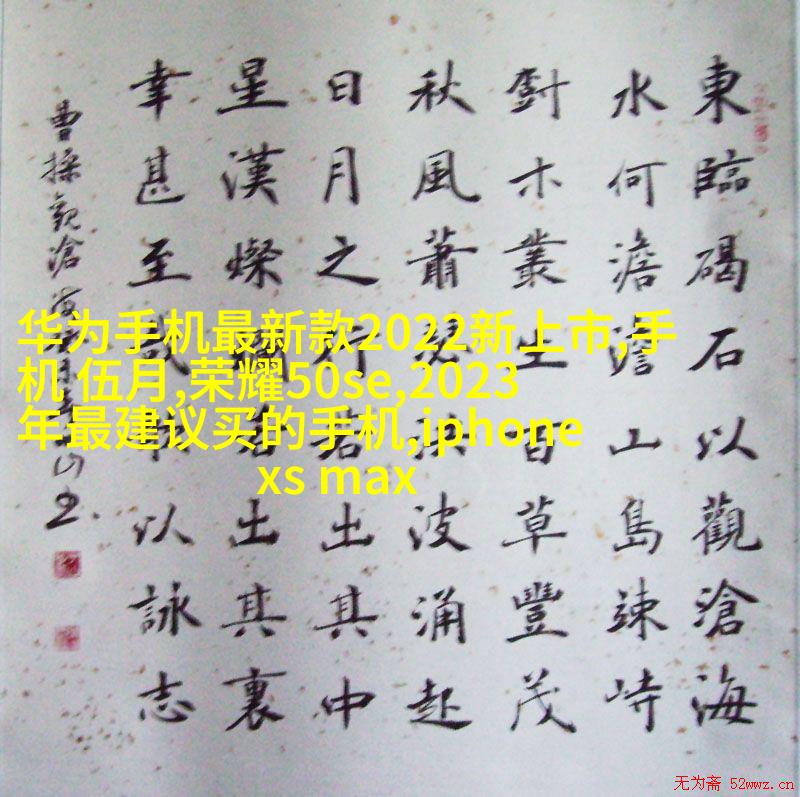 東臨碣石以觀滄海
水何澹澹山島竦峙
尌木叢生百草豐茂
秋風蕭瑟洪波涌起
日月之行若出其中
星漢燦爛若出其裏
幸甚至哉以詠志
曹操觀滄海
华为手机最新款2022新上市,手
机 伍月,荣耀50se,2023
年最建议买的手机,iphone
xs max
无为斋 52wwz.cn